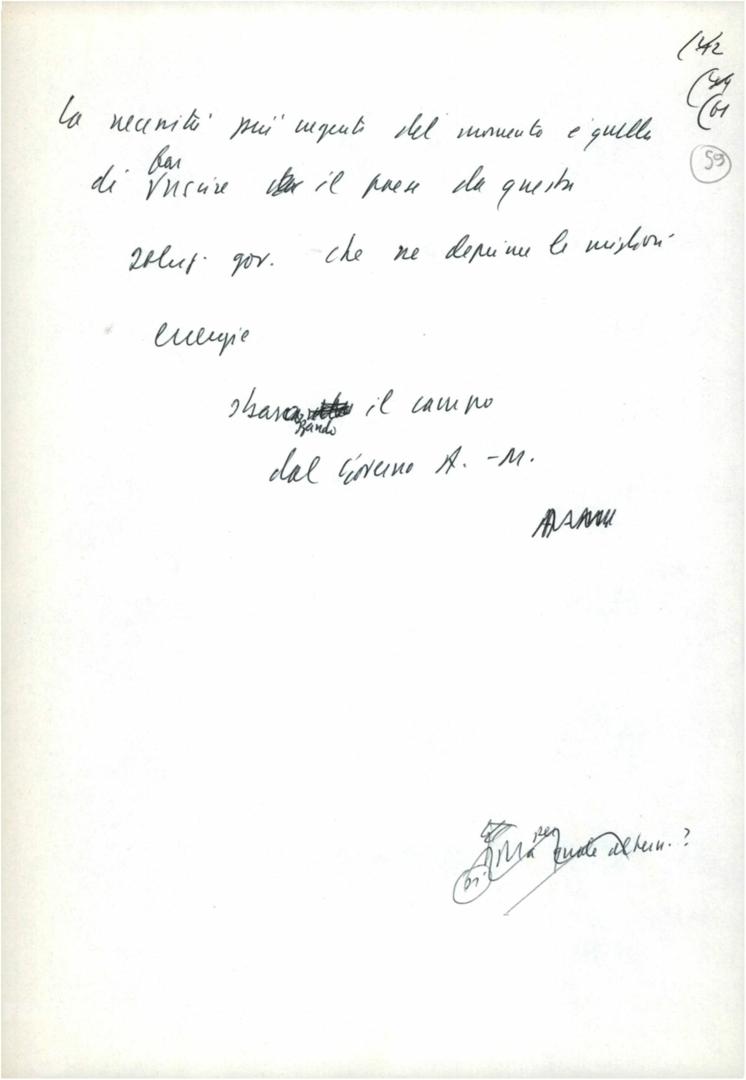 59
La necessità più urgente del momento è quella
far
di uscire il paese da questa
soluz. gov. che ne deprime le migliori
energie
sbaraz il campo
zando
dal Governo A. -M.
Ma per quale altern.?